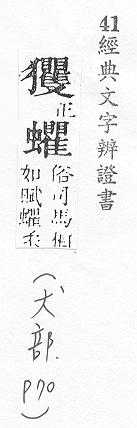 41 經典文字辨證書
玃 正
蠷 俗司馬相
如賦蠷
(犬部 p70)